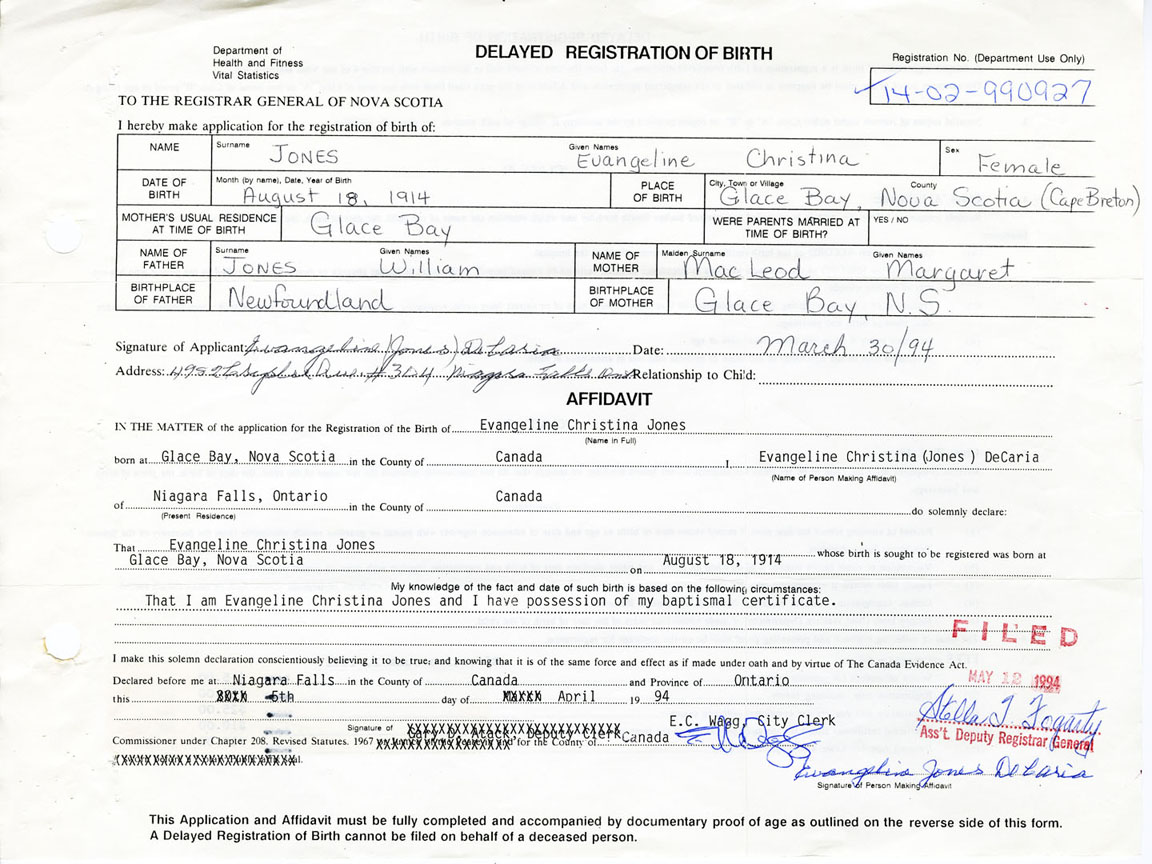 Department of
Health and Fitness
Vital Statistics
DELAYED REGISTRATION OF BIRTH
Registration No. (Department Use Only)
14-02-990927
TO THE REGISTRAR GENERAL OF NOVA SCOTIA
I hereby make application for the registration of birth of:
NAME Surname JONES Given Names Evangeline Christina Sex Female
DATE OF BIRTH Month (by name), Date, Year of Birth August 18, 1914 PLACE OF BIRTH City, Town or Village Glace Bay, County Nova Scotia (Cape Breton)
MOTHER'S USUAL RESIDENCE AT TIME OF BIRTH Glace Bay WERE PARENTS MARRIED AT TIME OF BIRTH? YES / NO
NAME OF FATHER Surname JONES Given Names William NAME OF MOTHER Maiden Surname MacLeod Given Names Margaret
BIRTHPLACE OF FATHER Newfoundland BIRTHPLACE OF MOTHER Glace Bay, N.S.
Signature of Applicant: Evangeline (Jones) DeCaria Date: March 30/94
Address: 4952 Ave. # 314 Niagara Falls Ont Relationship to Child:
AFFIDAVIT
IN THE MATTER of the application for the Registration of the Birth of Evangeline Christina Jones
(Name in Full)
born at Glace Bay, Nova Scotia in the County of Canada I, Evangeline Christina (Jones ) DeCaria
(Name of Person Making Affidavit)
of Niagara Falls, Ontario in the County of Canada do solemnly declare:
(Present Residence)
That Evangeline Christina Jones whose birth is sought to be registered was born at
Glace Bay, Nova Scotia on August 18, 1914
My knowledge of the fact and date of such birth is based on the following circumstances:
That I am Evangeline Christina Jones and I have possession of my baptismal certificate.
FILED
I make this solemn declaration conscientiously believing it to be true; and knowing that it is of the same force and effect as if made under oath and by virtue of The Canada Evidence Act.
MAY 12 1994
Declared before me at Niagara Falls in the County of Canada and Province of Ontario
this 5th day of April 19 94
E.C. Wagg, City Clerk
Stella T Fogarty
Ass't. Deputy Registrar General
Signature of
Commissioner under Chapter 208, Revised Statutes. 1967 for the County of Canada
Evangeline Jones DeCaria
Signature of Person Making Affidavit
This Application and Affidavit must be fully completed and accompanied by documentary proof of age as outlined on the reverse side of this form.
A Delayed Registration of Birth cannot be filed on behalf of a deceased person.